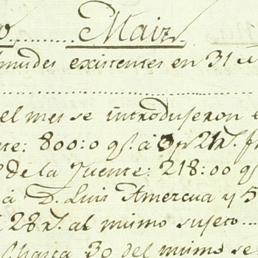 Maiz
mudes existentes en 31 de
el mes se introdujeron e
te: 800:0 qs. á 3 p 21 rs. f
l de la fuente: 218:00 qs
á D. Luis Amercua y 5
28 rs. al mismo sujeto
hasta 30 del mismo se